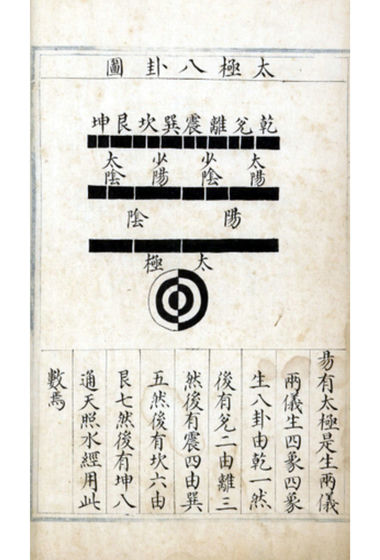 太極八卦圖
乾兌離震巽坎艮坤
太陽 少陰 少陽 太陰
陽 陰
太極
易有太極是生兩儀
兩儀生四象四象
生八卦由乾一然
後有兌二由離三
然後有震四由巽
五然後有坎六由
艮七然後有坤八
通天照水經用此
數焉